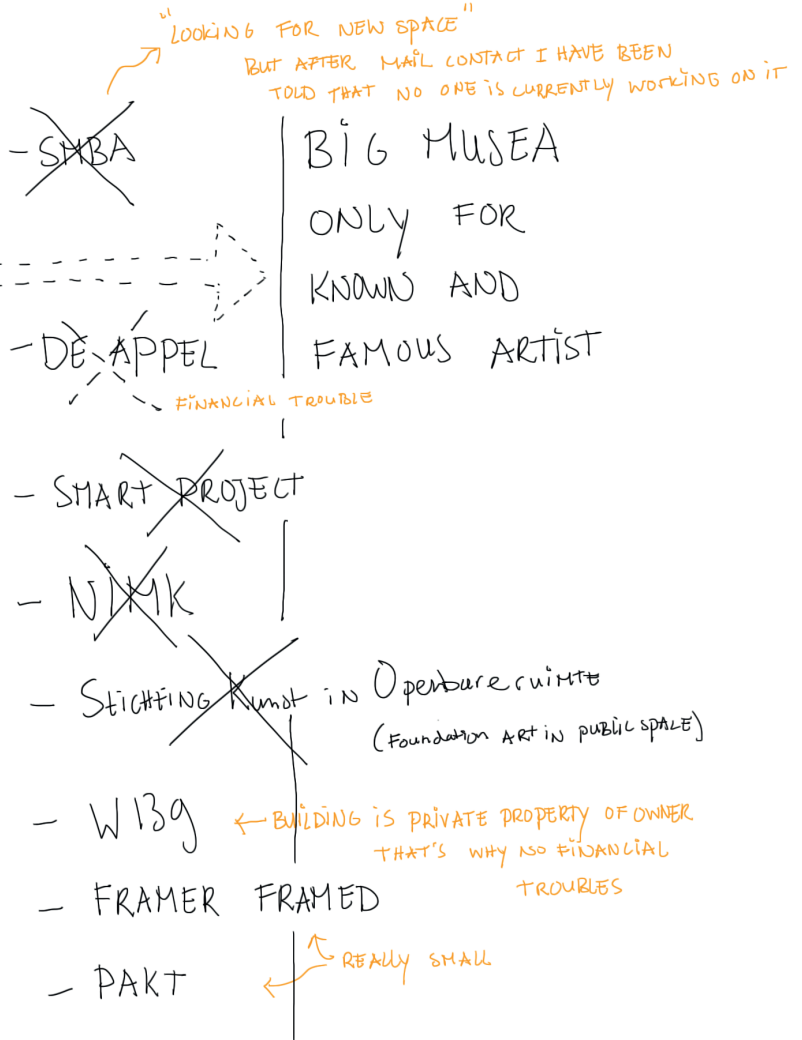 "LOOKING FOR NEW SPACE"
BUT AFTER MAIL CONTACT I HAVE BEEN
TOLD THAT NO ONE IS CURRENTLY WORKING ON IT
- SMBA
BIG MUSEA
ONLY FOR
KNOWN AND
FAMOUS ARTIST
- DE APPEL
FINANCIAL TROUBLE
- SMART PROJECT
- NIMK
- STICHTING Kunst in Openbare ruimte
(Foundation ART IN PUBLIC SPACE)
- W139
BUILDING IS PRIVATE PROPERTY OF OWNER
THAT'S WHY NO FINANCIAL
TROUBLES
- FRAMER FRAMED
REALLY SMALL
- PAKT